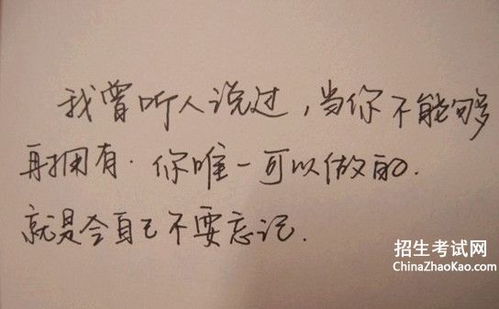 我曾听人说过，当你不能够
再拥有．你唯一可以做的．
就是令自己不要忘记．
招生考试网
ChinaZhaoKao.com